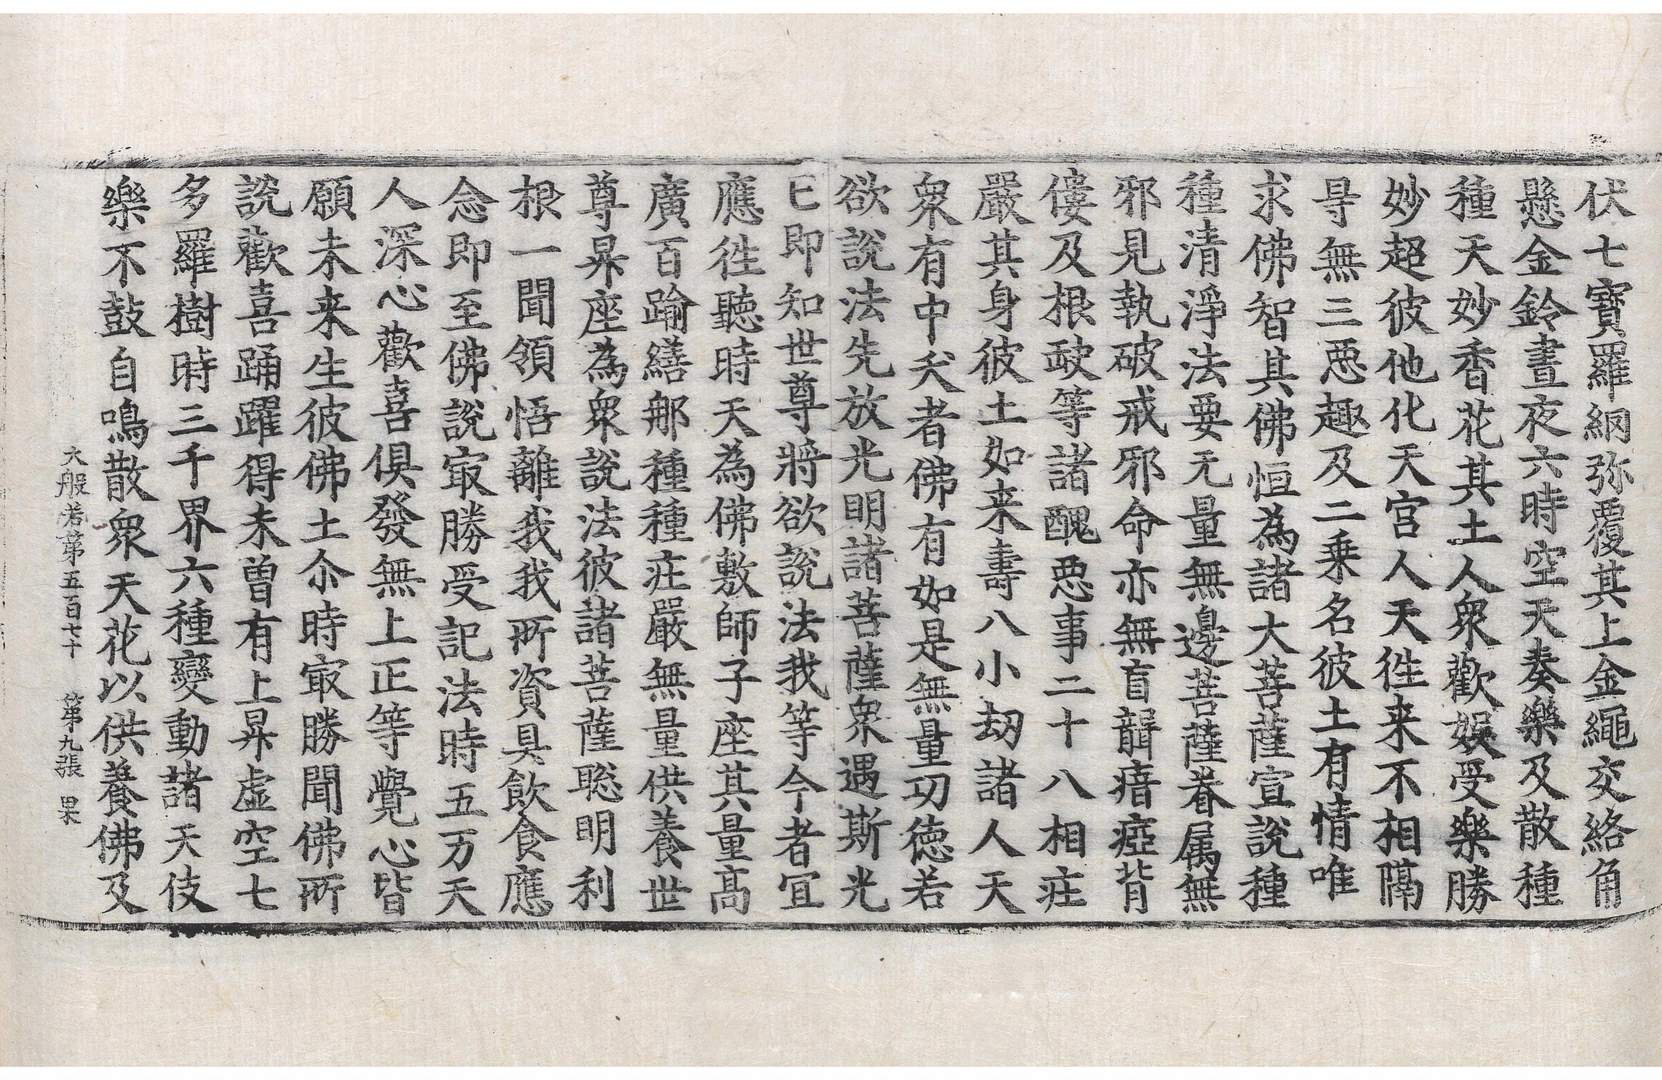 伏七寶羅網弥覆其上金繩交絡角
懸金鈴晝夜六時空天奏樂及散種
種天妙香花其土人衆歡娛受樂勝
妙超彼他化天宮人天徃来不相隔
㝵無三惡趣及二乗名彼土有情唯
求佛智其佛恒為諸大菩薩宣說種
種清淨法要无量無邊菩薩眷属無
邪見執破戒邪命亦無盲聾瘖瘂背
僂及根𡙇等諸醜惡事二十八相荘
嚴其身彼土如来壽八小劫諸人天
衆有中夭者佛有如是無量功徳若
欲說法先放光明諸菩薩衆遇斯光
已即知世尊將欲說法我等今者宜
應徃聽時天為佛敷師子座其量高
廣百踰繕那種種荘嚴無量供養世
尊昇座為衆說法彼諸菩薩聦明利
根一聞領悟離我我所資具飲食應
念即至佛說㝡勝受記法時五万天
人深心歡喜俱發無上正等覺心皆
願未来生彼佛土尒時㝡勝聞佛所
說歡喜踊躍得未曽有上昇虚空七
多羅樹時三千界六種變動諸天伎
樂不鼓自鳴散衆天花以供養佛及
大般若第五百七十　第九張　果